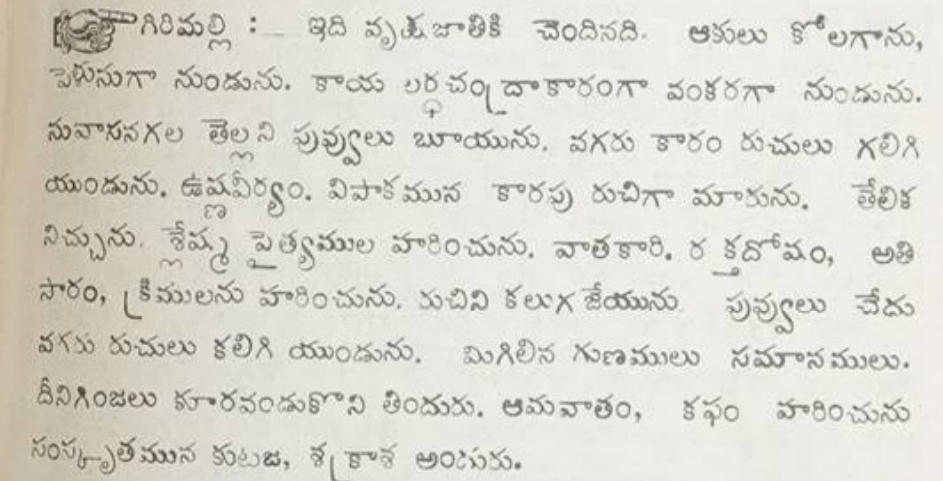 గిరిమల్లి : ఇది వృక్షజాతికి చెందినది. ఆకులు కోలగాను,
పెళుసుగా నుండును. కాయ లర్ధచంద్రాకారంగా వంకరగా నుండును.
సువాసనగల తెల్లని పువ్వులు బూయును. వగరు కారం రుచులు గలిగి
యుండును. ఉష్ణవీర్యం. విపాకమున కారపు రుచిగా మారును. తేలిక
నిచ్చును. శ్లేష్మ పైత్యముల హరించును. వాతకారి. రక్తదోషం, అతి
సారం, క్రిములను హరించును. రుచిని కలుగ జేయును పువ్వులు చేదు
వగరు రుచులు కలిగి యుండును. మిగిలిన గుణములు సమానములు.
దీనిగింజలు కూరవండుకొని తిందురు. ఆమవాతం, కఫం హరించును
సంస్కృతమున కుటజ, శక్రాశ అందురు.